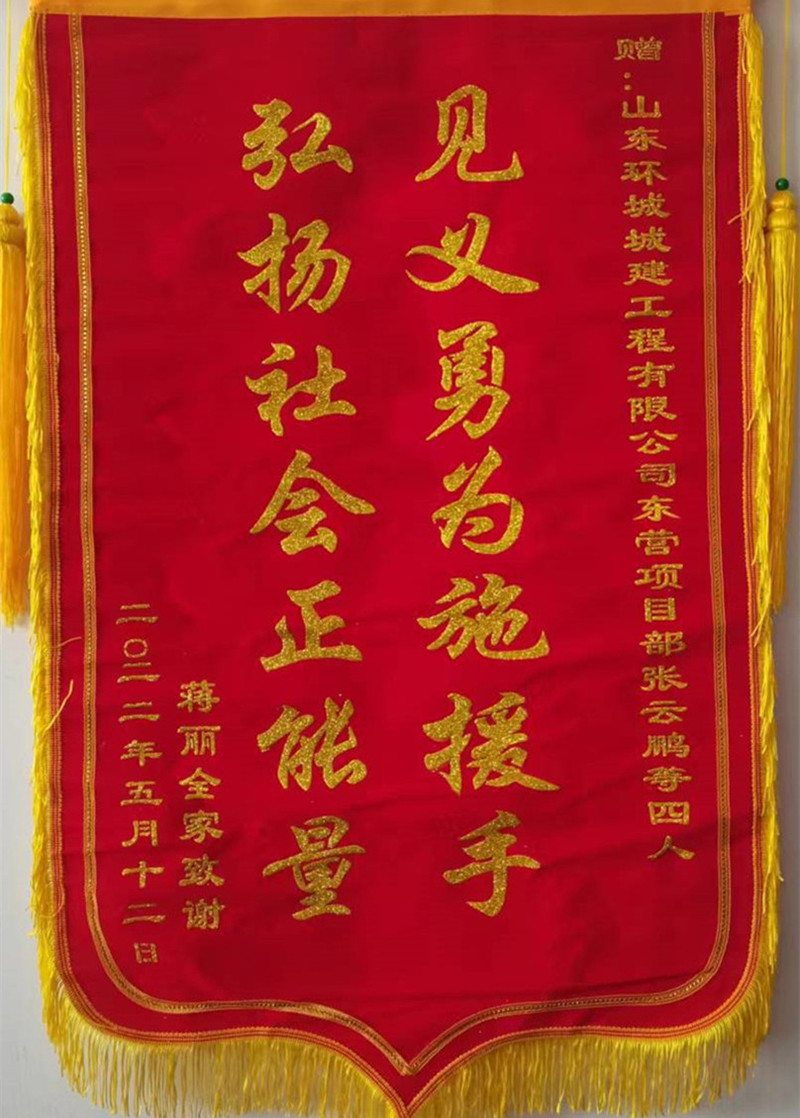 赠：山东环城城建工程有限公司东营项目部张云鹏等四人
见义勇为施援手
弘扬社会正能量
蒋丽全家致谢
二〇二二年五月十二日